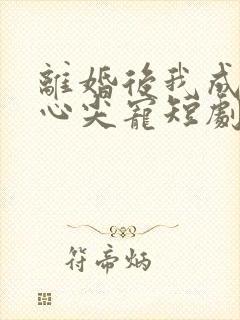 離婚後我成
心尖寵短劇
符帝炳